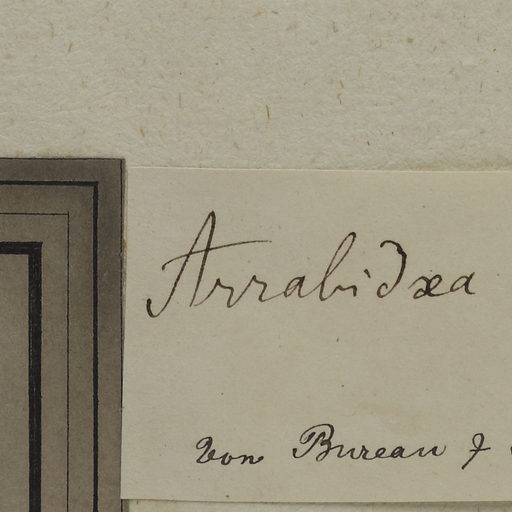 Arrabidæa
von Bureau f